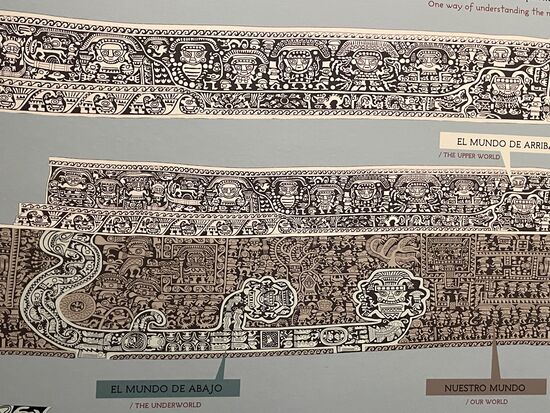 One way of understanding the
EL MUNDO DE ARRIBA
/ THE UPPER WORLD
EL MUNDO DE ABAJO
/ THE UNDERWORLD
NUESTRO MUNDO
/ OUR WORLD